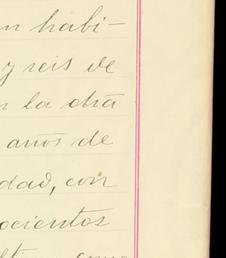 n habi-
y seis de
n la dha
años de
dad, con
ocientos
como